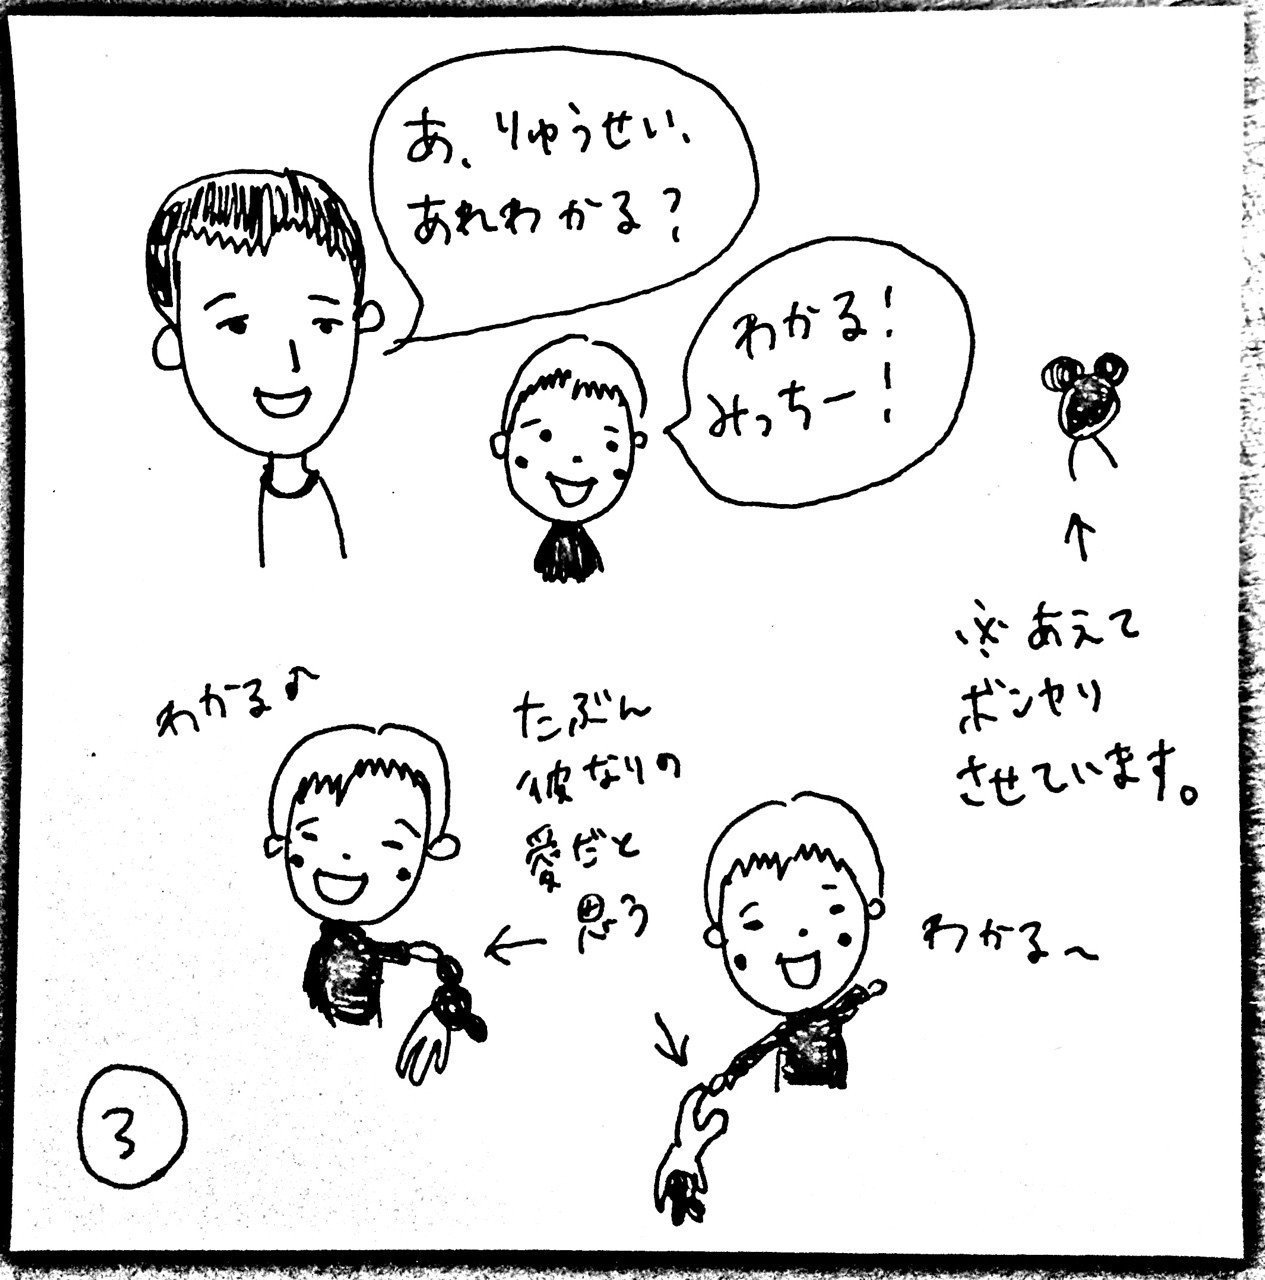 あ、りゅうせい、
あれわかる?
わかる!
みっちー!
※あえて
ボンヤリ
させています。
わかる♪
たぶん
彼なりの
愛だと
思う
わかる〜
3